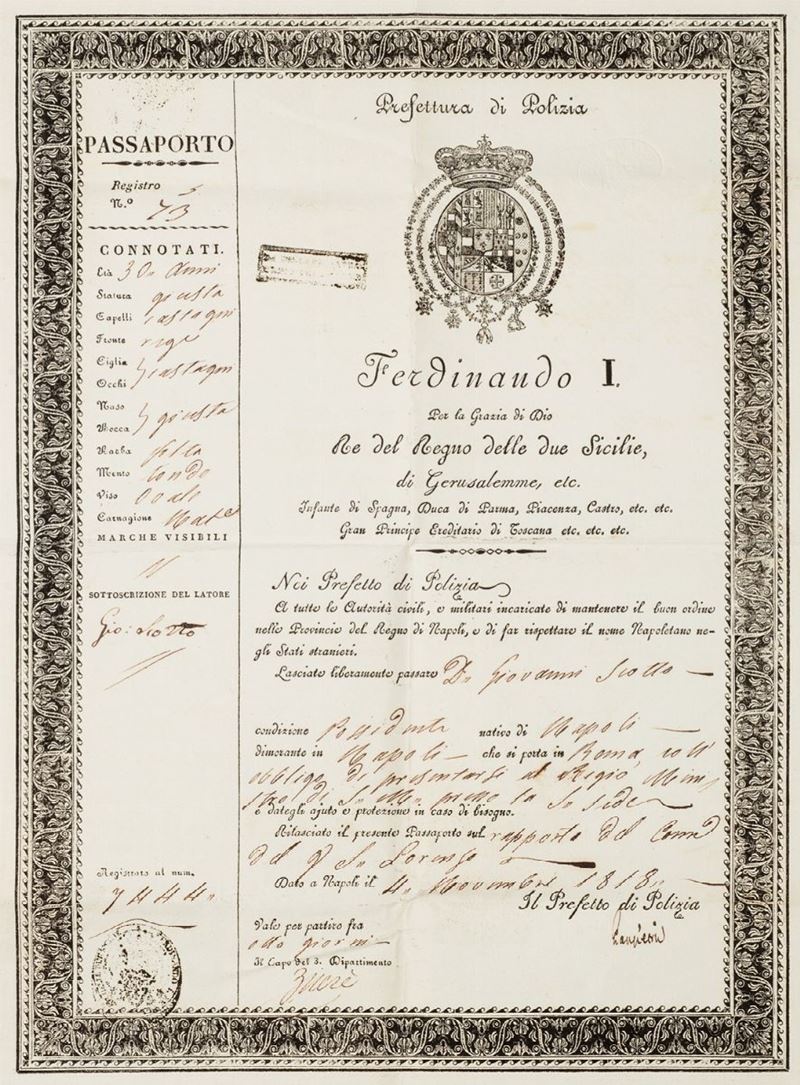 PASSAPORTO
Registro
N.º 73
CONNOTATI.
Età 30 Anni
Statura giusta
Capelli castagni
Fronte
Ciglia
Occhi castagni
Naso
Bocca giusta
Barba
Mento tondo
Viso Ovale
Carnagione Nat.e
MARCHE VISIBILI
SOTTOSCRIZIONE DEL LATORE
Gio: Scotto
Registrato al num.
7444
Prefettura di Polizia
Ferdinando I.
Per la Grazia di Dio
Re del Regno delle due Sicilie,
di Gerusalemme, etc.
Infante di Spagna, Duca di Parma, Piacenza, Castro, etc. etc.
Gran Principe Ereditario di Toscana etc. etc. etc.
Noi Prefetto di Polizia
A tutte le Autorità civili, e militari incaricate di mantenere il buon ordine
nelle Provincie del Regno di Napoli, e di far rispettare il nome Napoletano ne-
gli Stati stranieri.
Lasciate liberamente passare D. Giovanni Scotto
condizione Possidente nativo di Napoli
dimorante in Napoli che si porta in Roma, coll'
obbligo di presentarsi al Regio Mini
stro di S. M. presso la S. Sede
e dategli ajuto e protezione in caso di bisogno.
Rilasciato il presente Passaporto sul rapporto del Comm
del Q S. Lorenzo
Dato a Napoli il 4 Novembre 1818
Il Prefetto di Polizia
Vale per partire fra
otto giorni
Il Capo del 3. Dipartimento